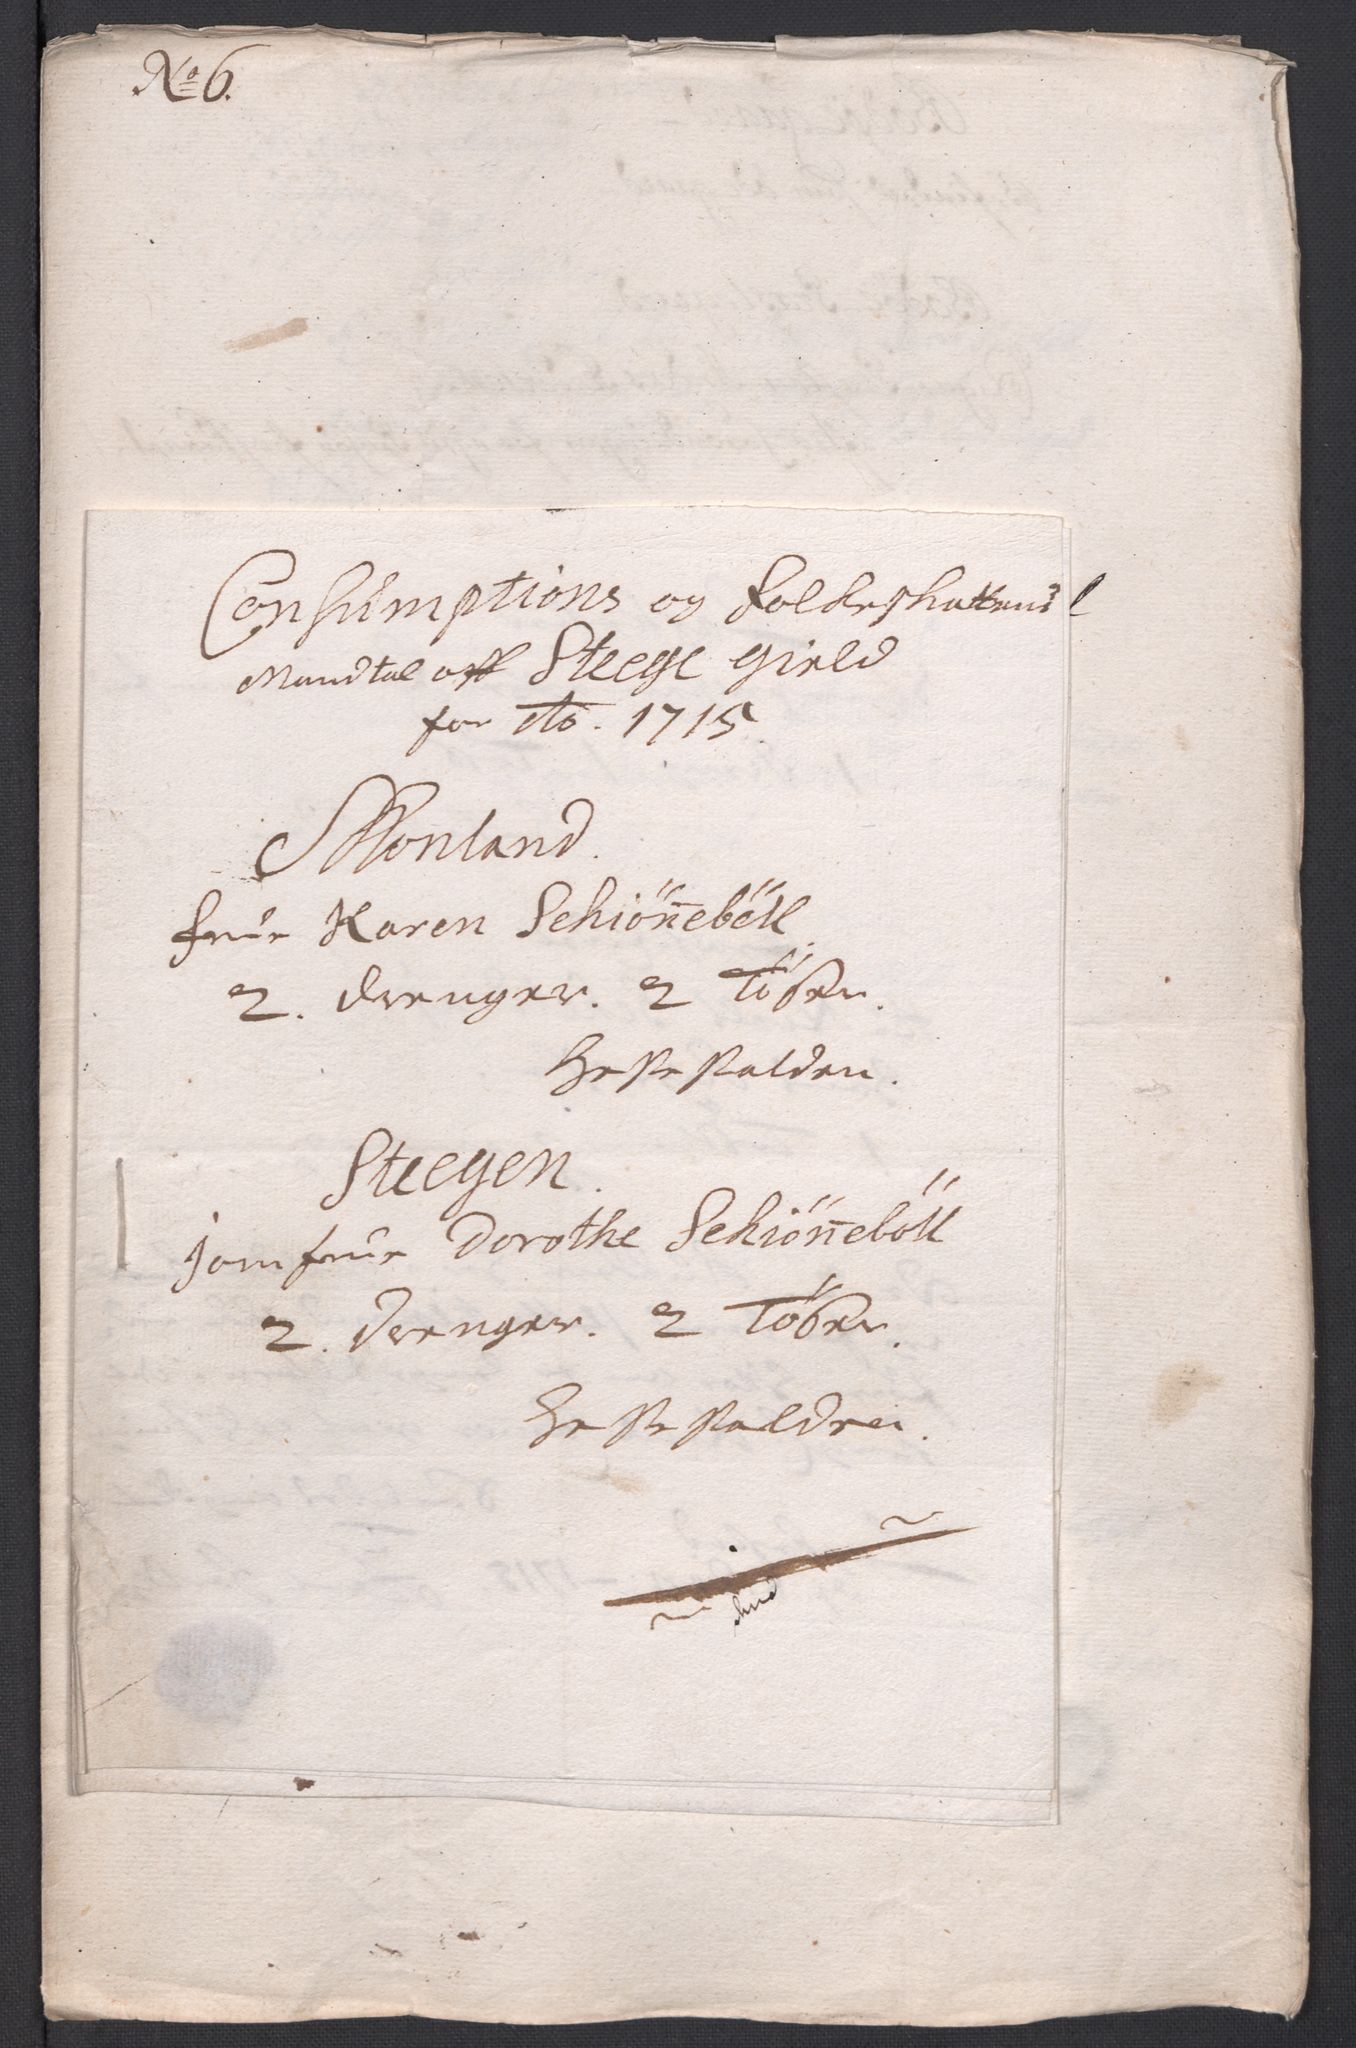 No 6.
Consumptions og Folkeskattens
Mandtal off Steege Gield
for Ao. 1715
Monland.
Frue Karen Schiönneböll
2. drenger. 2 Töser.
Steegen.
Jomfrue Dorothe Schiönneböll
2. drenger. 2 Töser.